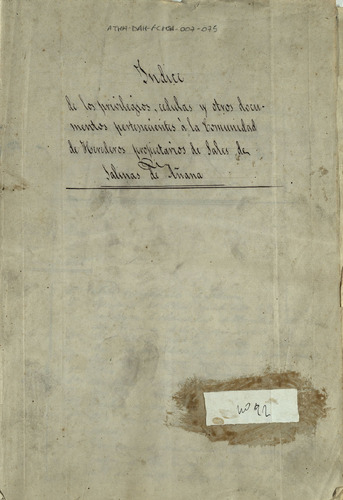 ATHA-DAH-FCASA-007-075
Indice
de los privilegios, cédulas y otros docu-
mentos pertenecientes á la Comunidad
de Herederos propietarios de Sales de
Salinas de Añana
nº 22